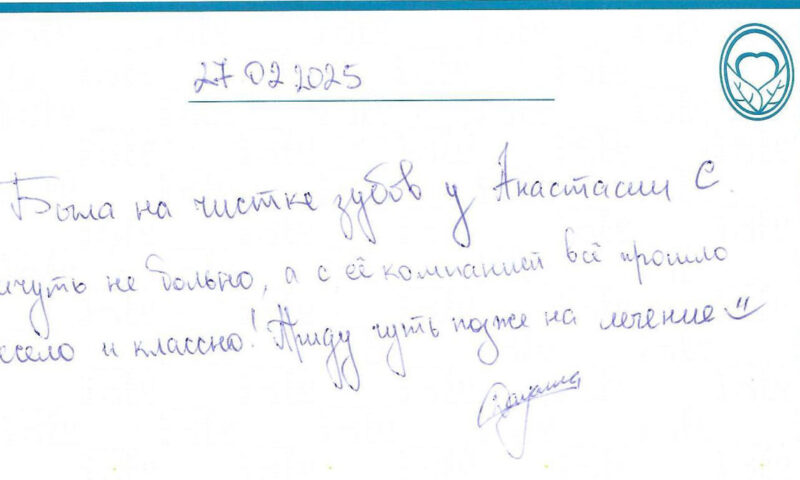 27 02 2025
Была на чистке зубов у Анастасии С.
ичуть не больно, а с её компанией всё прошло
село и классно! Приду чуть позже на лечение